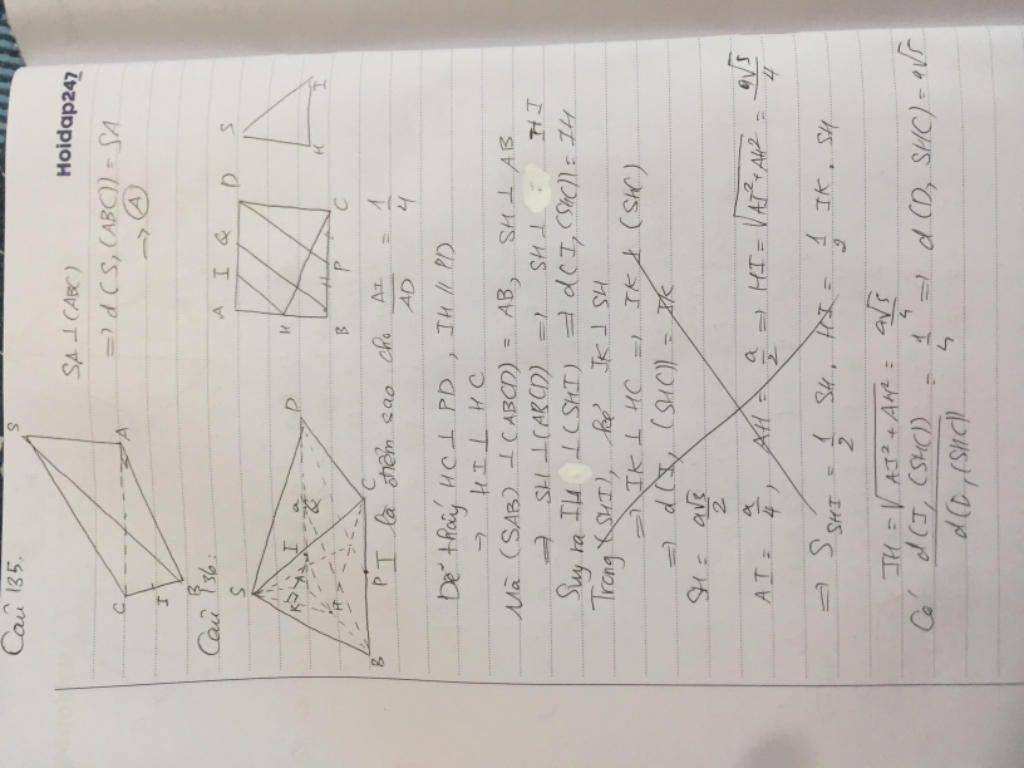 Hoidap247
Câu 135.
SA ⊥ (ABC)
=> d(S, (ABC)) = SA
→ Ⓐ
S
C
A
I
B
Câu 136:
S
K
A
I
D
Q
H
B
P
C
A I Q D
H
H
B P C
S
H I
I là điểm sao cho AI/AD = 1/4
Dễ thấy HC ⊥ PD, IH // PD
→ HI ⊥ HC
Mà (SAB) ⊥ (ABCD) = AB, SH ⊥ AB
=> SH ⊥ (ABCD) => SH ⊥ HI
Suy ra IH ⊥ (SHI) => d(I, (SHC)) = IH
Trong (SHI), kẻ IK ⊥ SH
=> IK ⊥ HC => IK ⊥ (SHC)
=> d(I, (SHC)) = IK
SH = a√3/2
AI = a/4, AH = a/2 => HI = √(AI² + AH²) = a√5/4
=> S SHI = 1/2 SH . HI = 1/2 IK . SH
IH = √(AI² + AH²) = a√5/4
Có d(I, (SHC))/d(D, (SHC)) = 1/4 => d(D, SHC) = a√5